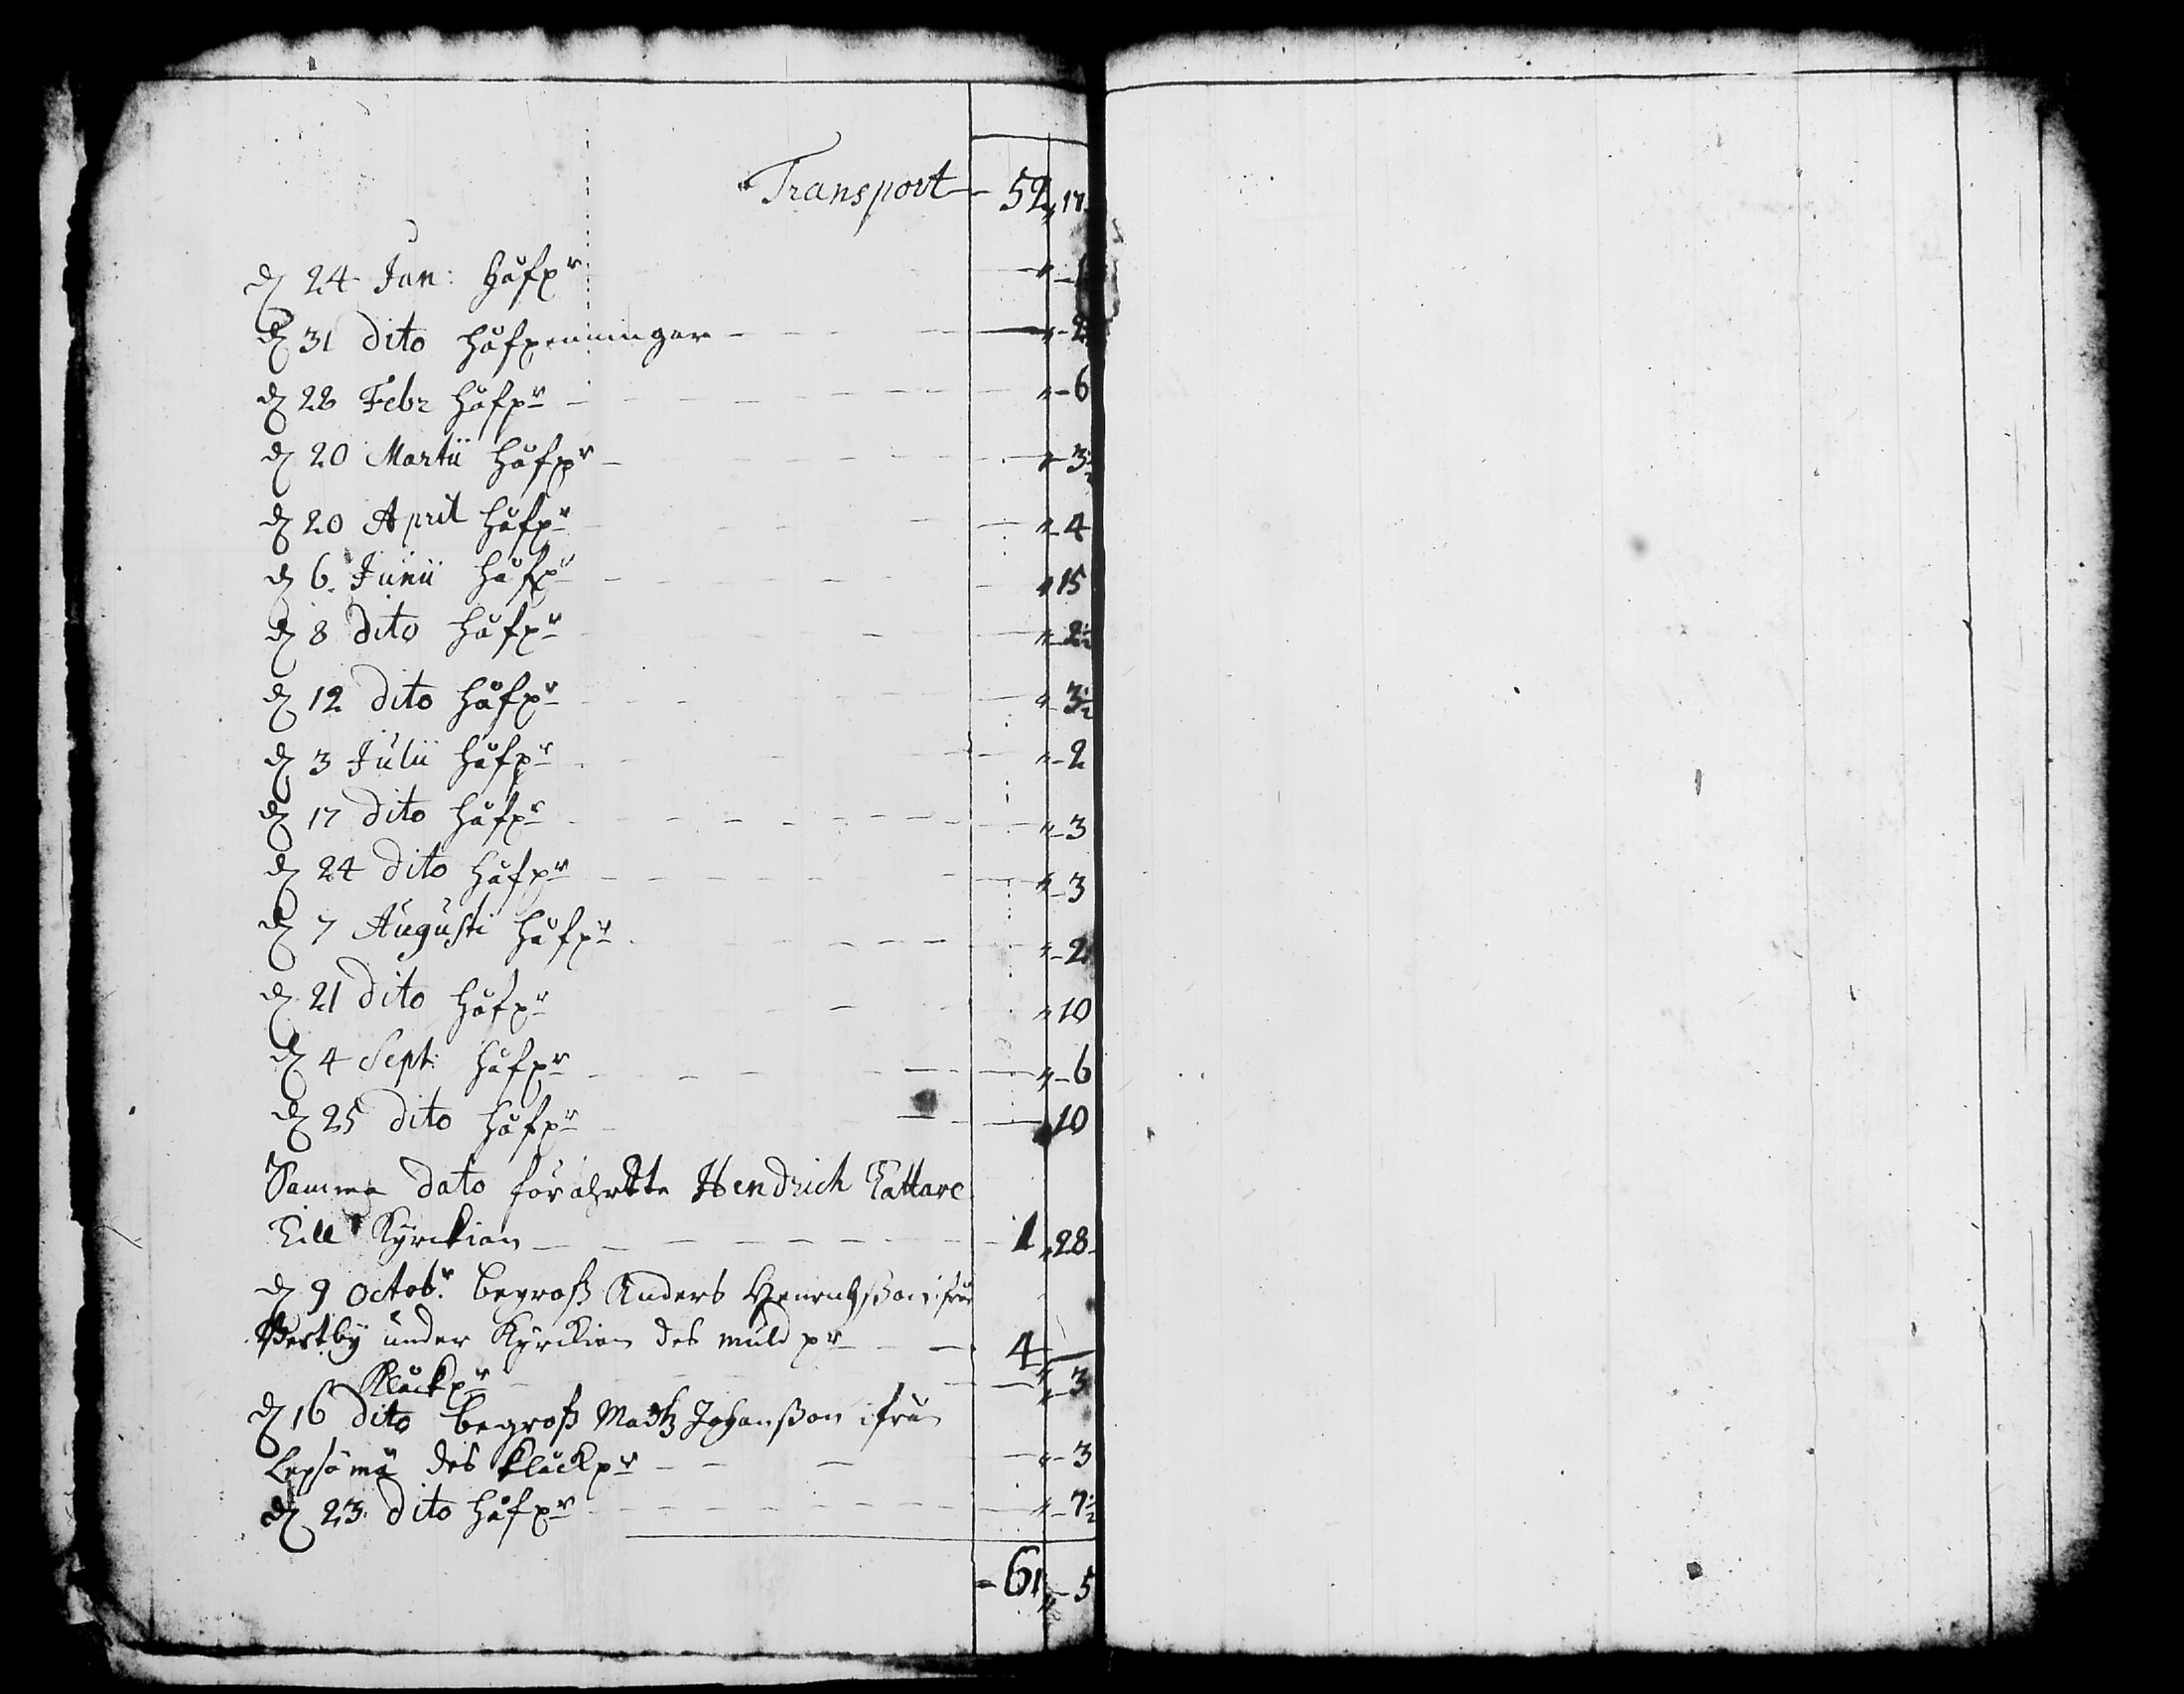 Transport - 52 " 17
d 24 Jan: Håfpr - " - 1
d 31 dito håfpenningar - " - 2
d 28 Febr håfpr - " - 6
d 20 Martii håfpr - " - 3½
d 20 April håfpr - " - 4
d 6. Junii håfpr - " 15
d 8 dito håfpr - " - 2½
d 12 dito håfpr - " 3½
d 3 Julii håfpr - " - 2
d 17 dito håfpr - " - 3
d 24 dito håfpr - " - 3
d 7 Augusti håfpr - " - 2
d 21 dito håfpr - " 10
d 4 Sept: håfpr - " - 6
d 25 dito håfpr - " 10
Samma dato förährtte Hendrich Tattare
Till Kyrckian - 1 " 28
d 9 Octobr. begrofz Anders Henrichßon ifrån
Westby under Kyrckian des muld pr - 4 -
Klåckpr - " - 3
d 16 dito begrofz Matz Johanßon ifrån
Lepsämä des klåckpr - " - 3
d 23. dito håfpr - " - 7½
- 61 " - 5